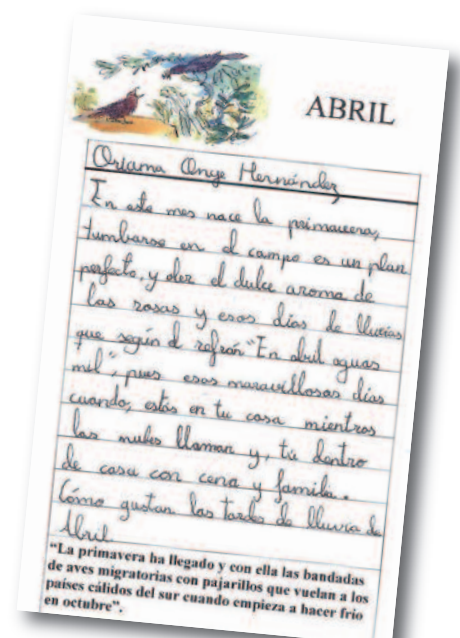 ABRIL
Oriama Onge Hernández
En este mes nace la primavera,
tumbarse en el campo es un plan
perfecto. y oler el dulce aroma de
las rosas y esos días de lluvias
que según el refrán "En abril aguas
mil", pues esos maravillosos días
cuando, estás en tu casa mientras
las nubes llaman y, tú dentro
de casa con cena y familia.
Cómo gustan las tardes de lluvia de
Abril
"La primavera ha llegado y con ella las bandadas
de aves migratorias con pajarillos que vuelan a los
países cálidos del sur cuando empieza a hacer frío
en octubre".